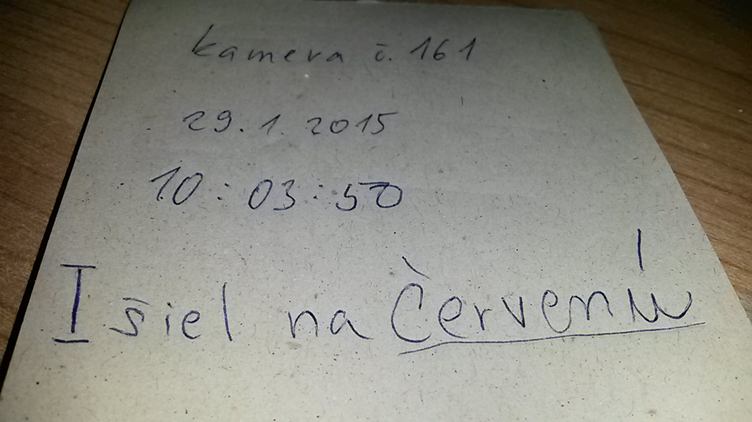 kamera č. 161
29.1.2015
10:03:50
I šiel na červenú